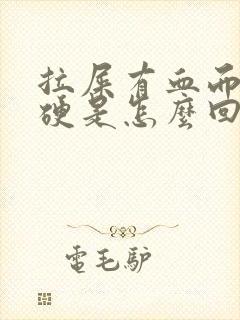 拉屎有血而
硬是怎麼回
電毛驴